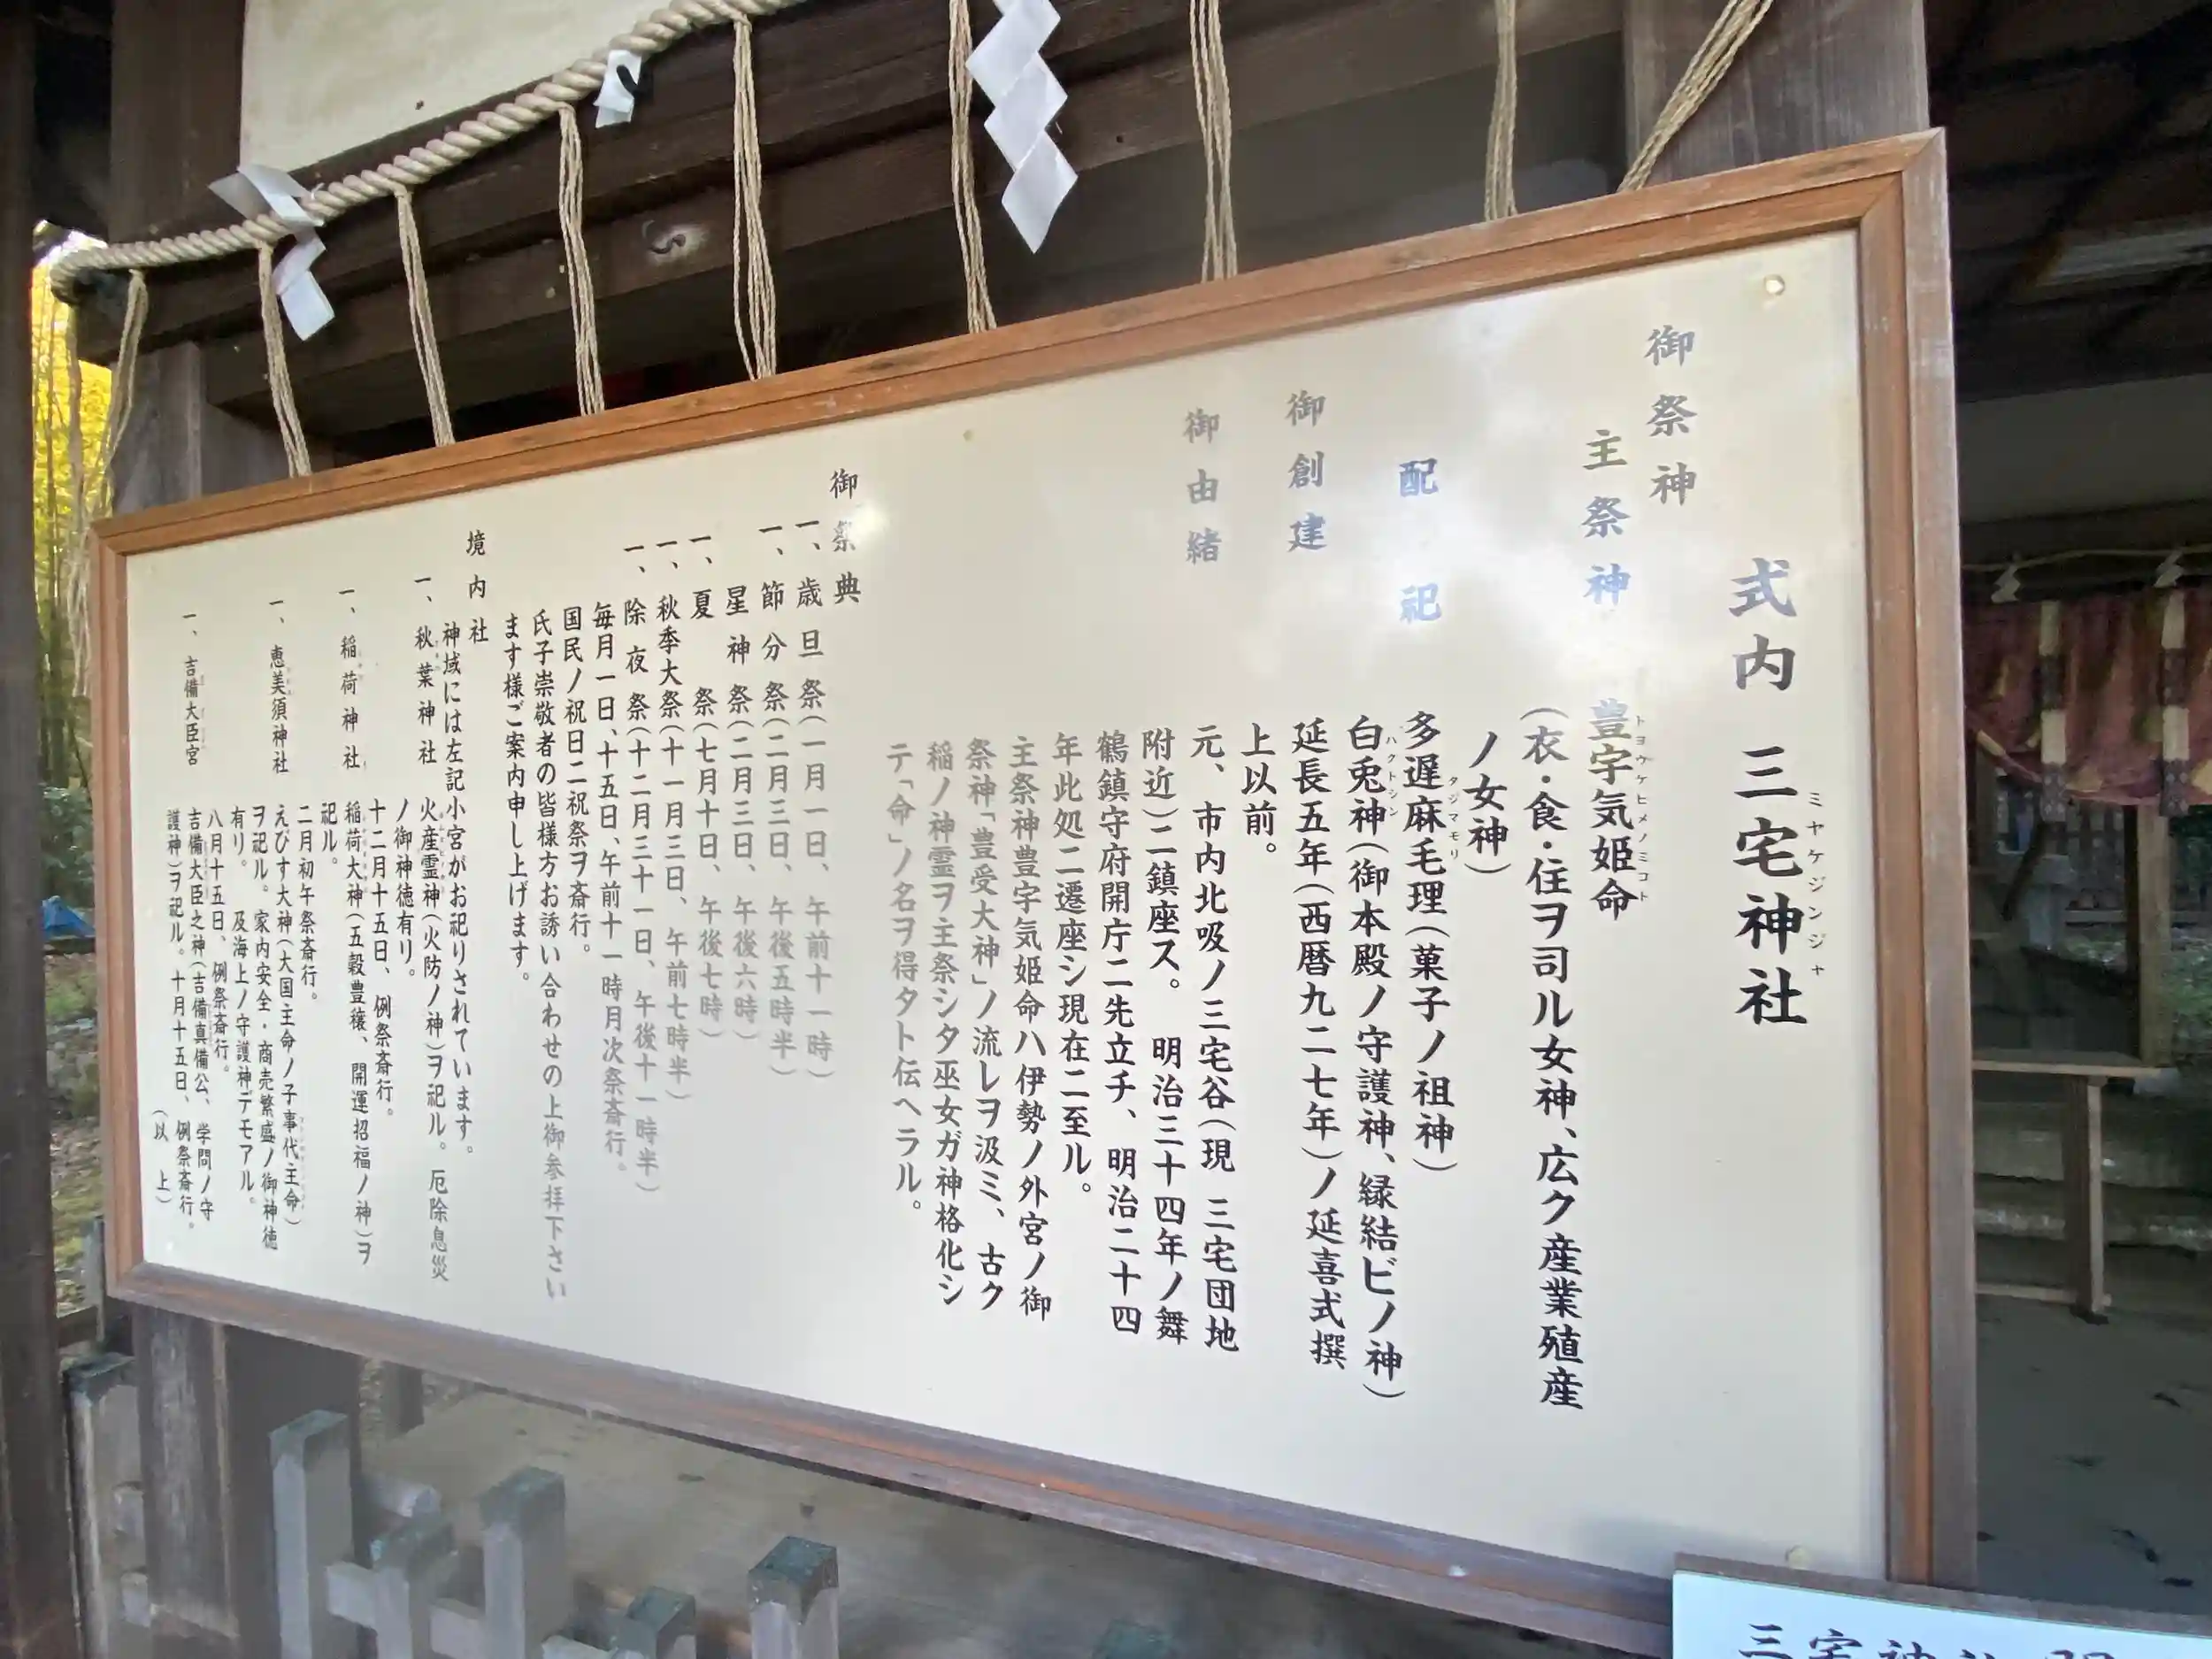 式内 三宅神社
ミヤケジンジャ
御祭神
主祭神 豊宇気姫命
トヨウケヒメノミコト
(衣・食・住ヲ司ル女神、広ク産業殖産
ノ女神)
配祀 多遅麻毛理(菓子ノ祖神)
タジマモリ
白兎神(御本殿ノ守護神、緑結ビノ神)
ハクトシン
御創建 延長五年(西暦九二七年)ノ延喜式撰
上以前。
御由緒 元、市内北吸ノ三宅谷(現 三宅団地
附近)二鎮座ス。 明治三十四年ノ舞
鶴鎮守府開庁二先立チ、明治二十四
年此処二遷座シ現在二至ル。
主祭神豊宇気姫命ハ伊勢ノ外宮ノ御
祭神「豊受大神」ノ流レヲ汲ミ、古ク
稲ノ神霊ヲ主祭シタ巫女ガ神格化シ
テ「命」ノ名ヲ得タト伝ヘラル。
御祭典
一、歳旦祭(一月一日、午前十一時)
一、節分祭(二月三日、午後五時半)
星神祭(二月三日、午後六時)
一、夏祭(七月十日、午後七時)
一、秋季大祭(十一月三日、午前七時半)
一、除夜祭(十二月三十一日、午後十一時半)
毎月一日、十五日、午前十一時月次祭斎行。
国民ノ祝日二祝祭ヲ斎行。
氏子崇敬者の皆様方お誘い合わせの上御参拝下さい
ます様ご案内申し上げます。
境内社
神域には左記小宮がお祀りされています。
一、秋葉神社 火産霊神(火防ノ神)ヲ祀ル。厄除息災
ノ御神徳有リ。
十二月十五日、例祭斎行。
一、稲荷神社 稲荷大神(五穀豊穣、開運招福ノ神)ヲ
祀ル。
二月初午祭斎行。
一、恵美須神社 えびす大神(大国主命ノ子事代主命)
ヲ祀ル。家内安全・商売繁盛ノ御神徳
有リ。 及海上ノ守護神デモアル。
八月十五日、例祭斎行。
一、吉備大臣宮 吉備大臣之神(吉備真備公、学問ノ守
護神)ヲ祀ル。十月十五日、例祭斎行。
(以 上)
三宅神社